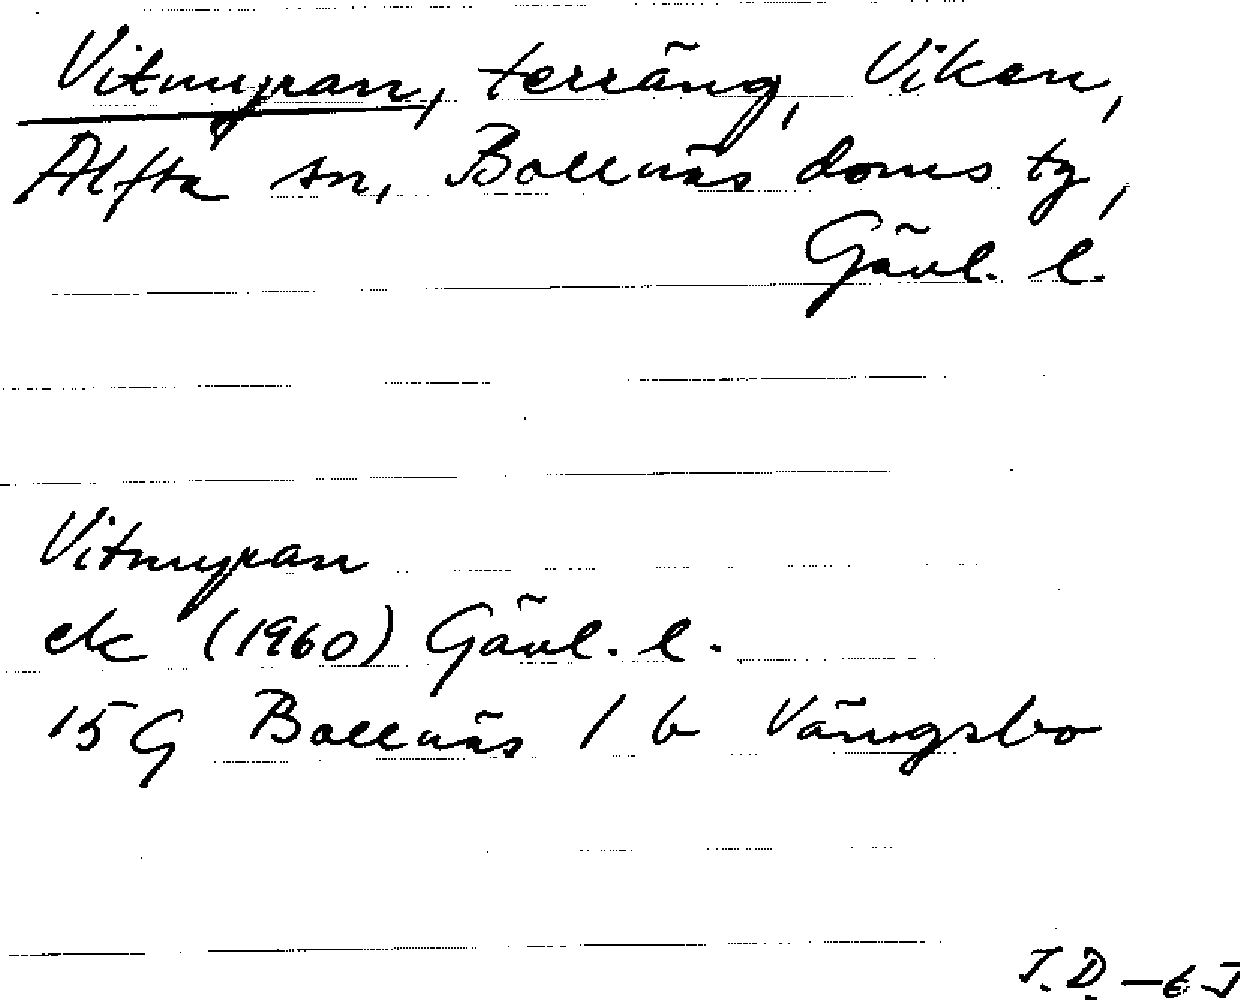 Vitmyran, terräng, Viken,
Alfta sn, Bollnäs doms tg,
Gävl. l.
Vitmyran
ek (1960) Gävl. l.
15G Bollnäs 1 b Vängsbo
J.D.